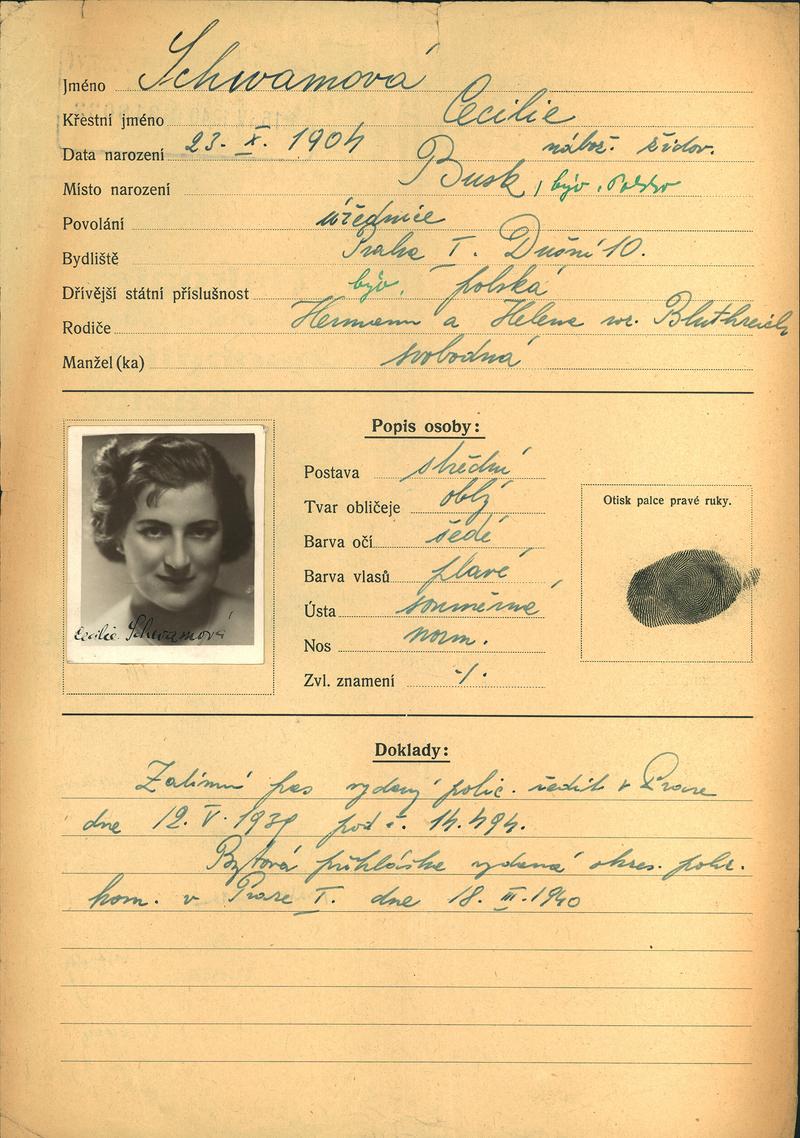 Jméno Schwamová
Křestní jméno Cecilie
Data narození 23. X. 1904 nábož. židov.
Místo narození Busk, býv. Polsko
Povolání úřednice
Bydliště Praha I. Dušní 10.
Dřívější státní příslušnost býv. polská
Rodiče Hermann a Helena roz. Bluthreich
Manžel (ka) svobodná
Popis osoby:
Postava střední
Tvar obličeje oblý
Barva očí šedé
Barva vlasů plavé
Ústa souměrné
Nos norm.
Zvl. znamení -/.
Otisk palce pravé ruky.
Cecilie Schwamová
Doklady:
Zatímní pas vydaný polic. ředit. v Praze
dne 12. V. 1939 pod č. 14.494.
Bytová přihláška vydaná okres. polic.
kom. v Praze I. dne 18. III. 1940